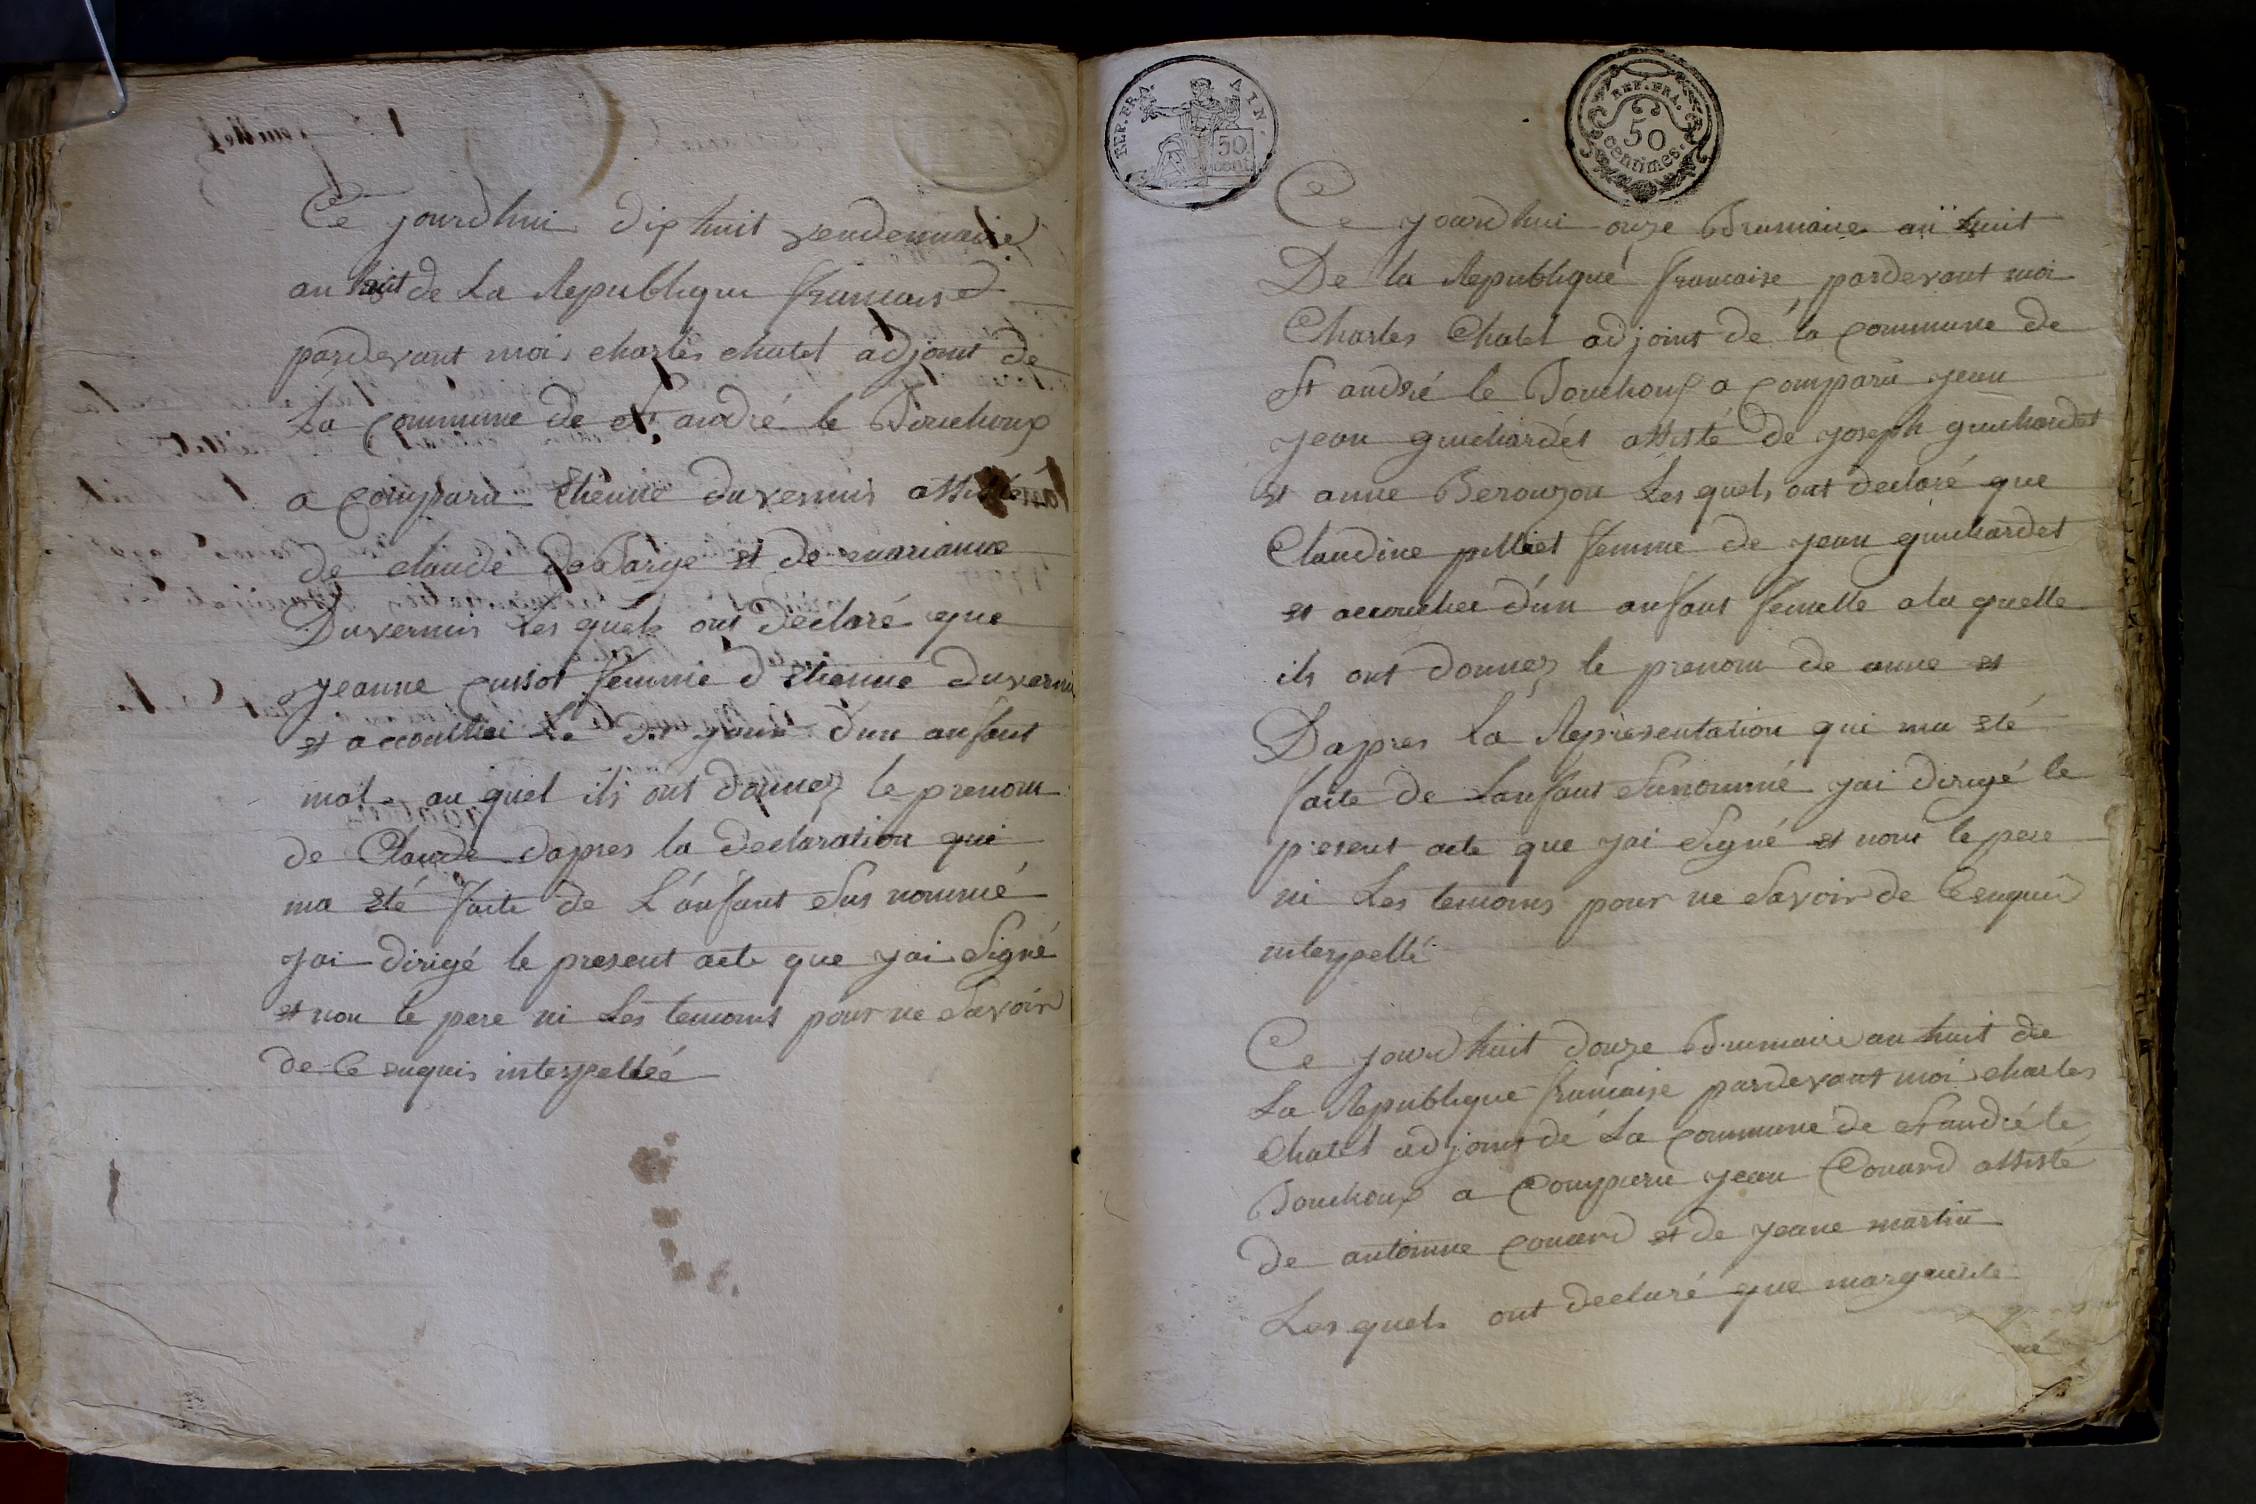 Ce jourdhui dix huit vendemiaire
an huit de La Republique francaise
pardevant moi charles chatel adjoint de
La commune de St andré le Bouchoux
a comparu Etienne duvernis assisté
de claude deBarge et de marianne
Duvernis les quels ont declaré que
jeanne cussot femme d'Etienne duvernis
et accouchée Le dit jour d'un anfant
mal au quel ils ont donnez le prenom
de Claude dapres la declaration qui
ma eté faite de L'anfant Sus nommé
jai dirigé le present acte que jai Signé
et non le pere ni Les temoins pour ne Savoir
de Ce enquis interpellée
REP. FRA. AIN.
50 cent.
REP. FRA.
50
centimes.
Ce jourdhui onze Brumaire an huit
De la Republique francaise pardevant moi
Charles Chatel adjoint de la commune de
St andré le Bouchoux a comparu jean
jean guichardet assisté de joseph guichardet
et anne Berouzon Les quels ont declaré que
Claudine pelliet femme de jean guichardet
et accouchee d'un anfant femelle a la quelle
ils ont donnez le prenom de anne et
Dapres La Representation qui ma eté
faite de Lanfant Sunommé jai dirigé le
present acte que jai Signé et nont le pere
ni Les temoins pour ne Savoir de Ce enquis
interpellé
Ce jourdhuit douze Brumaire an huit de
La Republique francaise pardevant moi charles
Chatel adjoint de La commune de St andré le
Bouchoux a Comparu jean Couard assisté
de antoinne couard et de jeane martin
Les quels ont declaré que marguerite